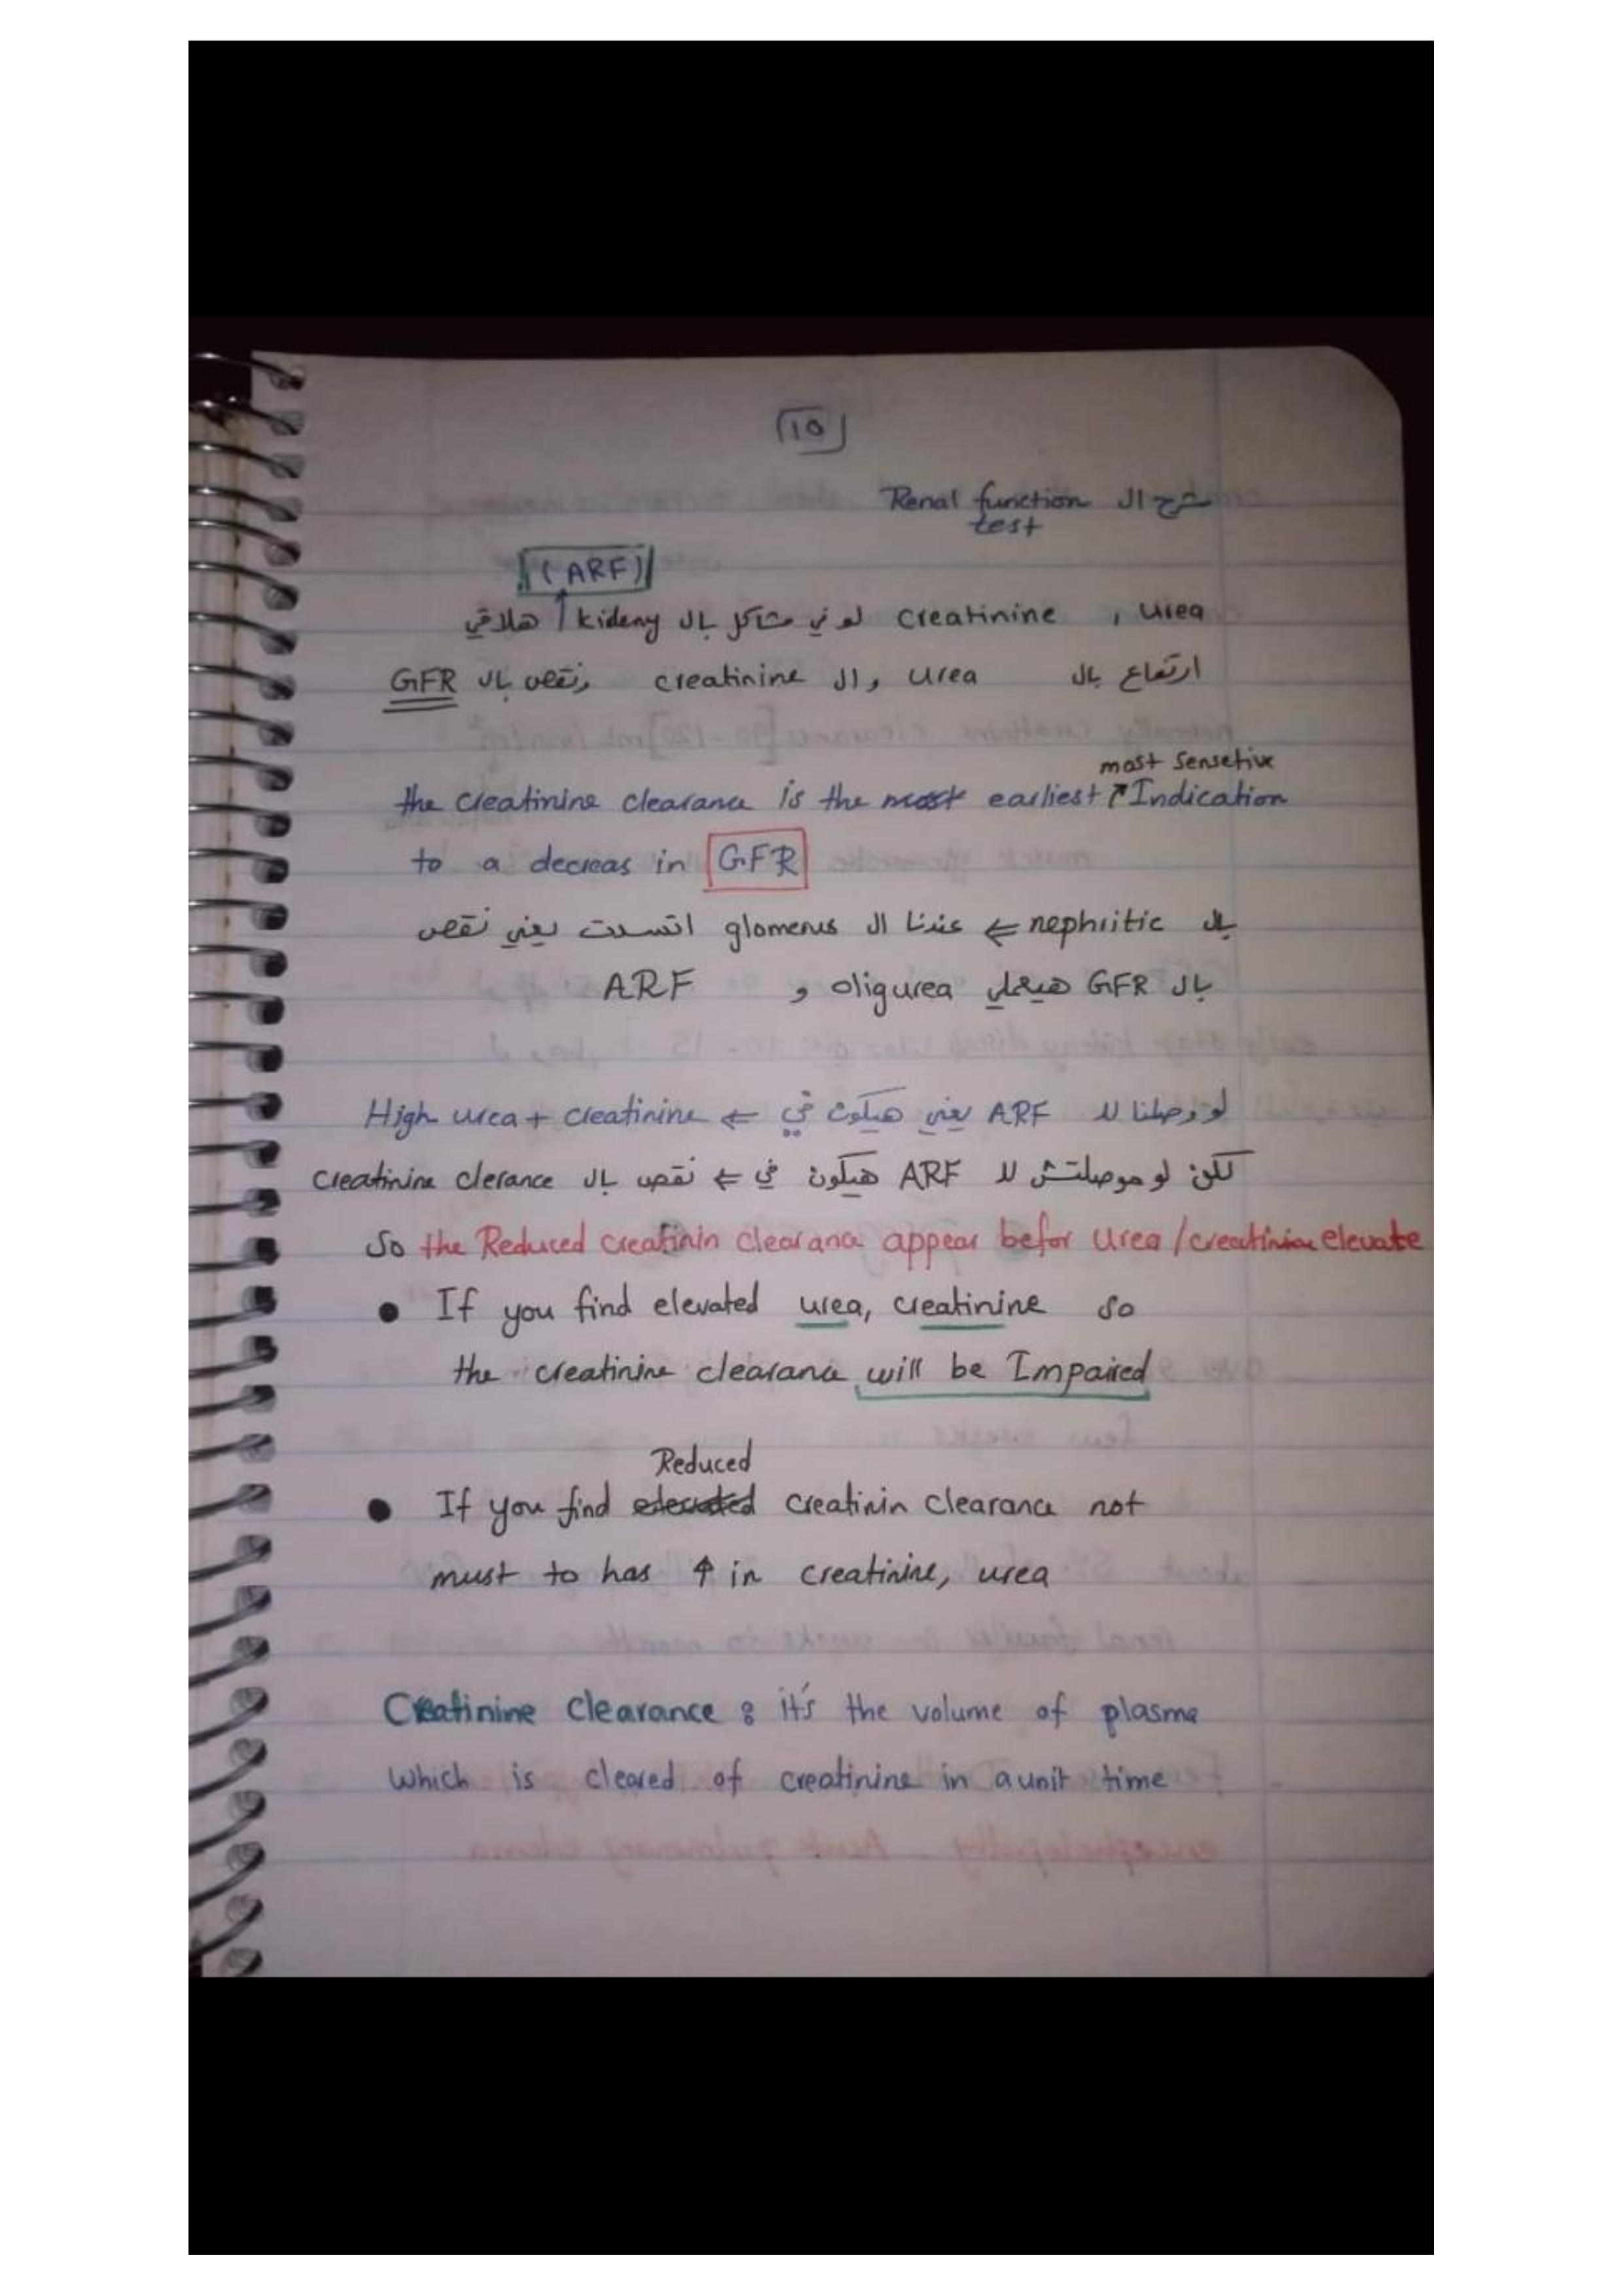 10
شرح ال Renal function
test
(ARF)
urea , creatinine لو في مشاكل بال kideny هلاقي
ارتفاع بال urea وال creatinine ونقص بال GFR
most Sensetive
the creatinine clearance is the most earliest Indication
to a decreas in GFR
بال nephritic ⇐ عندنا ال glomerus اتسدت يعني نقص
بال GFR هيعملي oligurea و ARF
لو وصلنا لل ARF يعني هيكون في ⇐ High urea + creatinine
لكن لو موصلتش لل ARF هيكون في ⇐ نقص بال creatinine clerance
So the Reduced creatinin clearance appear befor urea / creatinine elevate
• If you find elevated urea, creatinine so
the creatinine clearance will be Impaired
Reduced
• If you find elevated creatinin clearance not
must to has ↑ in creatinine, urea
Creatinine Clearance : it's the volume of plasma
which is cleared of creatinine in a unit time